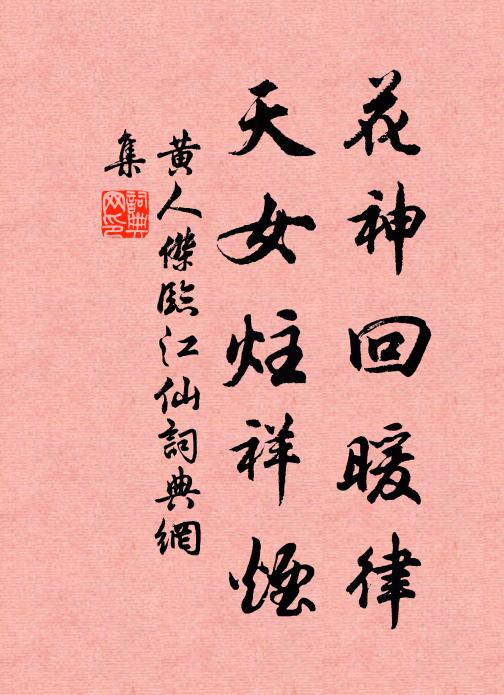 花神回暖律
天女炷祥煙
黄人傑臨江仙詞典網
集
詞典网印